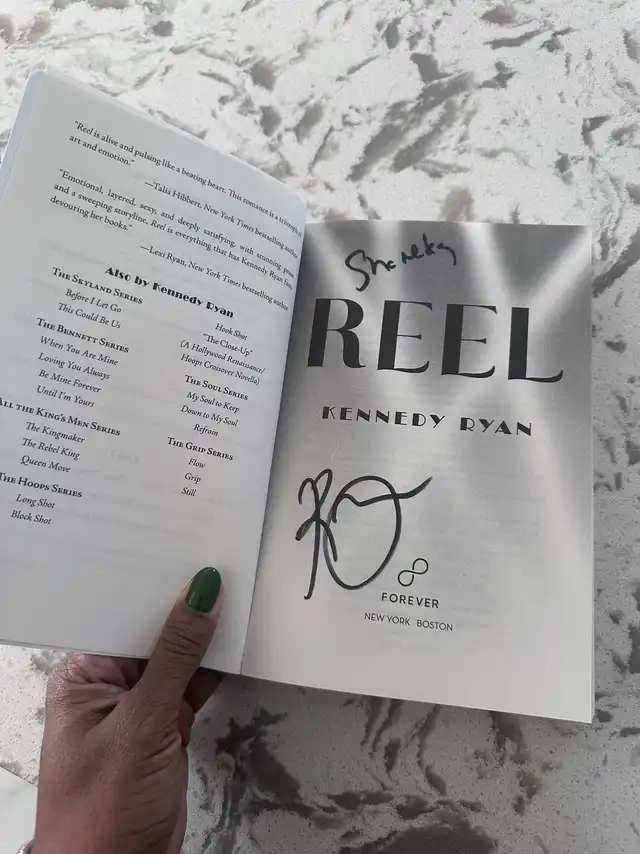 "Reel is alive and pulsing like a beating heart. This romance is a triumph of
art and emotion."
—Talia Hibbert, New York Times bestselling author
"Emotional, layered, sexy, and deeply satisfying, with stunning prose
and a sweeping storyline, Reel is everything that has Kennedy Ryan fans
devouring her books."
—Lexi Ryan, New York Times bestselling author
Also by Kennedy Ryan
The Skyland Series
Before I Let Go
This Could Be Us
The Bennett Series
When You Are Mine
Loving You Always
Be Mine Forever
Until I'm Yours
All the King's Men Series
The Kingmaker
The Rebel King
Queen Move
The Hoops Series
Long Shot
Block Shot
Hook Shot
"The Close-Up"
(A Hollywood Renaissance/
Hoops Crossover Novella)
The Soul Series
My Soul to Keep
Down to My Soul
Refrain
The Grip Series
Flow
Grip
Still
REEL
KENNEDY RYAN
FOREVER
NEW YORK BOSTON